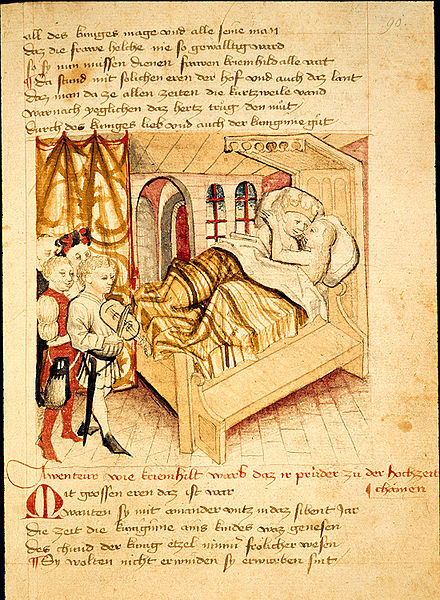 90.
all des kuniges mage vnd alle seine man
daz die frawe helche nie so gewaltig ward
so sy nun müssen dienen frawen kriemhild alle vart
Da stund mit solichen eren der hof vnd auch daz lant
daz man da ze allen zeiten die kurtzweile vand
warnach yeglichen daz hertz trug den müt
durch des kuniges lieb vnd auch der kuniginne güt
Awenteur wie kriemhilt warb daz ir prüder zu der hochzeit
chamen
Mit grossen eren daz ist war
wanten sy mit ainander vntz in daz sibent Jar
die zeit die kuniginne ains kindes waz genesen
des chund der kunig etzel nimmer frölicher wesen
Sy wolten nicht erwinden sy erwurben sint